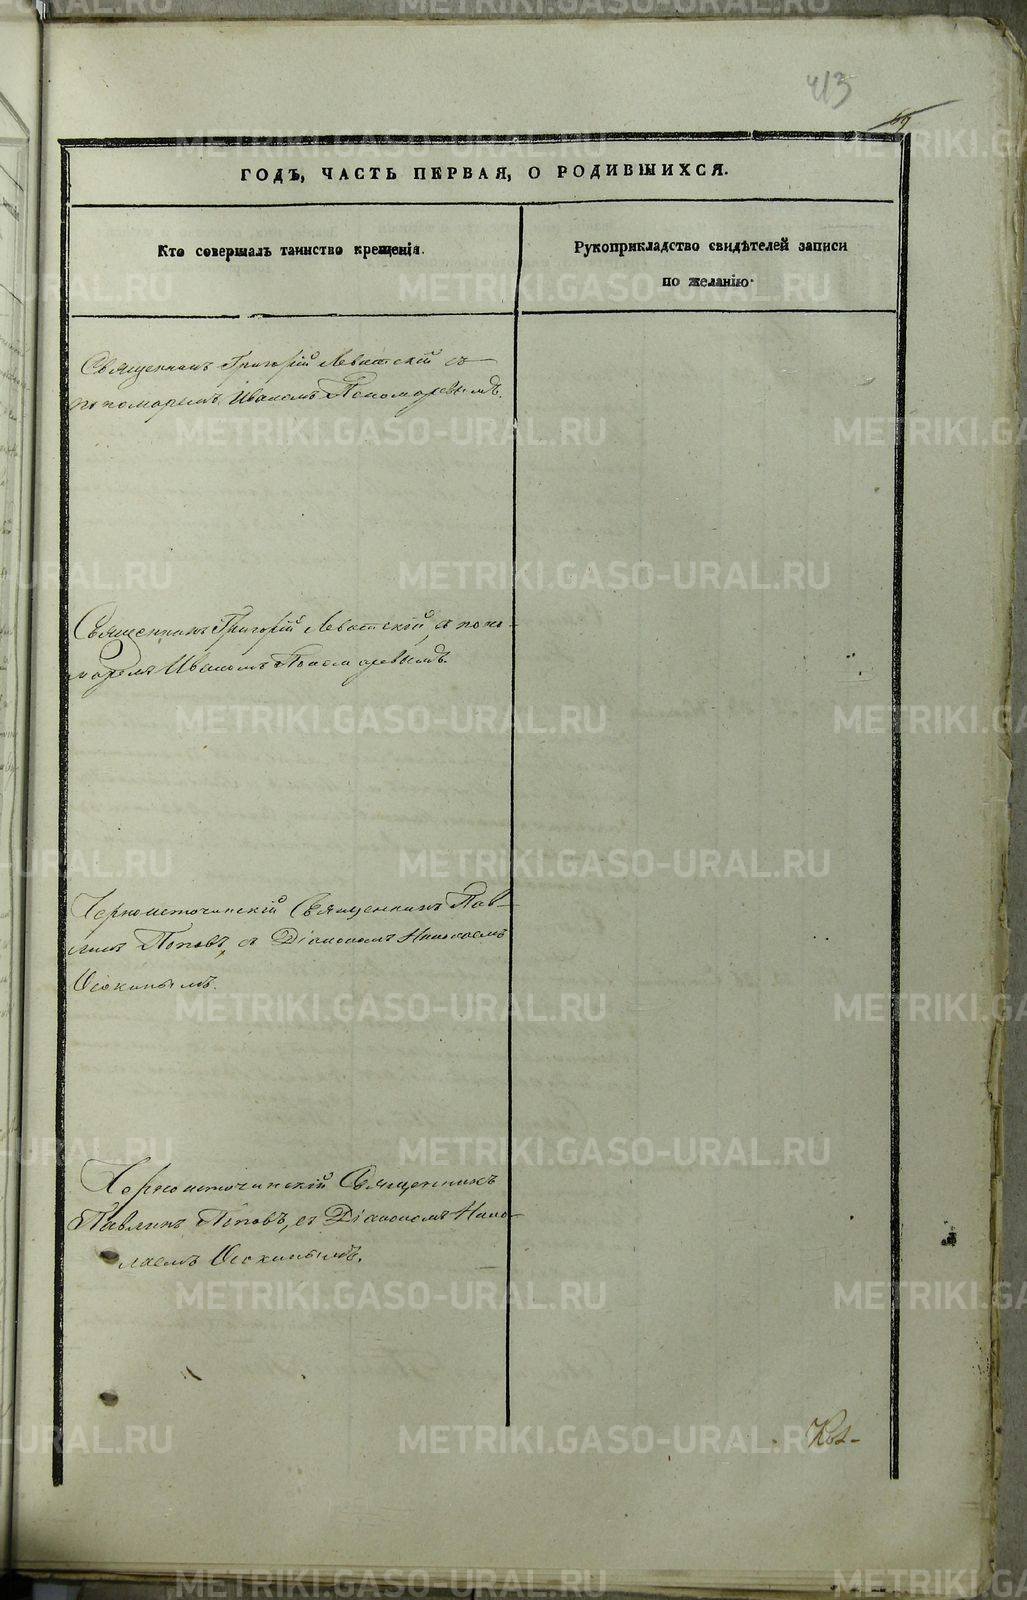 413
69
ГОДЪ, ЧАСТЬ ПЕРВАЯ, О РОДИВШИХСЯ.
Кто совершалъ таинство крещенія.
Рукоприкладство свидѣтелей записи
по желанію.
Священникъ Григорій Левитскій съ
пономаремъ Иваномъ Пономаревымъ.
Священникъ Григорій Левитскій, съ поно-
маремъ Иваномъ Пономаревымъ.
Черноисточинскій Священникъ Пав-
линъ Поповъ, съ Діакономъ Николаемъ
Оскинымъ.
Черноисточинскій Священникъ
Павлинъ Поповъ, съ Діакономъ Нико-
лаемъ Оскинымъ.
METRIKI.GASO-URAL.RU